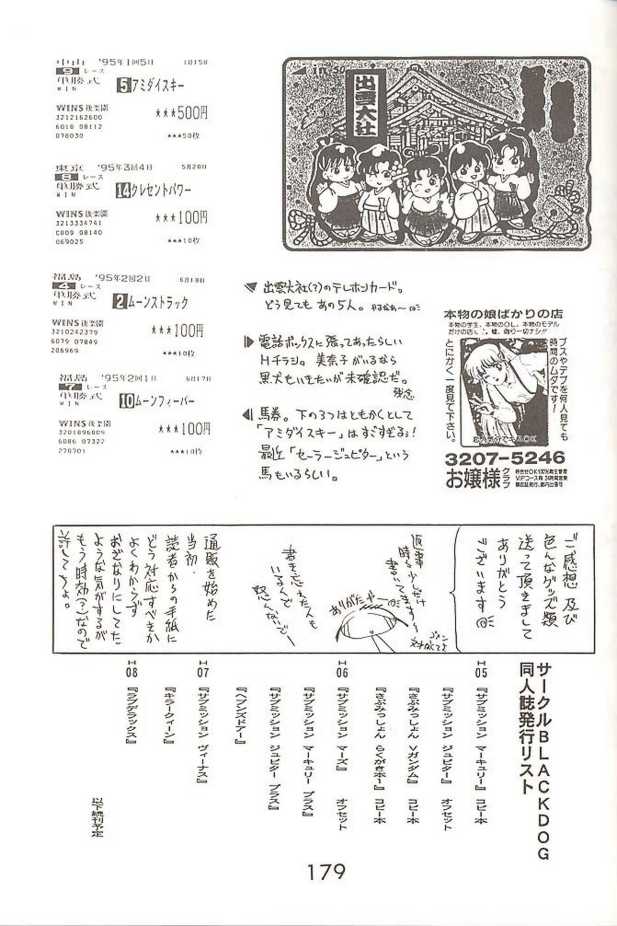 中山 '95年1回5日 1月15日
9 レース
単勝式 5 アミダイスキー
WIN
WINS後楽園 ★★★500円
3212162600
6018 08112
078030 ★★★50枚
東京 '95年3回4日 5月28日
8 レース
単勝式 14 クレセントパワー
WIN
WINS後楽園 ★★★100円
3213334741
C809 08140
069025 ★★★10枚
福島 '95年2回2日 6月18日
4 レース
単勝式 2 ムーンストラック
WIN
WINS後楽園 ★★★100円
3210242379
6079 07849
206969 ★★★10枚
福島 '95年2回1日 6月17日
7 レース
単勝式 10 ムーンフィーバー
WIN
WINS後楽園 ★★★100円
3201896009
6086 07322
270701 ★★★10枚
出雲大社
出雲大社(?)のテレホンカード。
どう見てもあの5人。
電話ボックスに張ってあったらしい
Hチラシ。美奈子がいるなら
黒犬もいきたいが未確認だ。
残念
馬券。下の3つはともかくとして
「アミダイスキー」はすごすぎる!
最近「セーラージュピター」という
馬もいるらしい。
本物の娘ばかりの店
本物の学生、本物のOL、本物のモデル
ブスやデブを何人見ても
時間のムダです!
とにかく一度見て下さい。
3207-5246
お嬢様クラブ
ご感想 及び
色んなグッズ類
送って頂きまして
ありがとう
ございます
返事
時々少しだけ
書いてますー
ゴメン
ありがたや
書き忘れた人も
いるんで
怒んないでー
通販を始めた
当初
読者からの手紙に
どう対応すべきか
よくわからず
おざなりにしてた
ような気がするが
もう時効(?)なので
許してちょ。
サークルBLACKDOG
同人誌発行リスト
H05 『サブミッション マーキュリー』 コピー本
『サブミッション ジュピター』 オフセット
『さぶみっしょん Vガンダム』 コピー本
『さぶみっしょん らくがきホー』 コピー本
H06 『サブミッション マーズ』 オフセット
『サブミッション マーキュリー プラス』
『サブミッション ジュピター プラス』
『ヘブンズドアー』
H07 『サブミッション ヴィーナス』
『キラークィーン』
H08 『ラブデラックス』
以下続刊予定
179